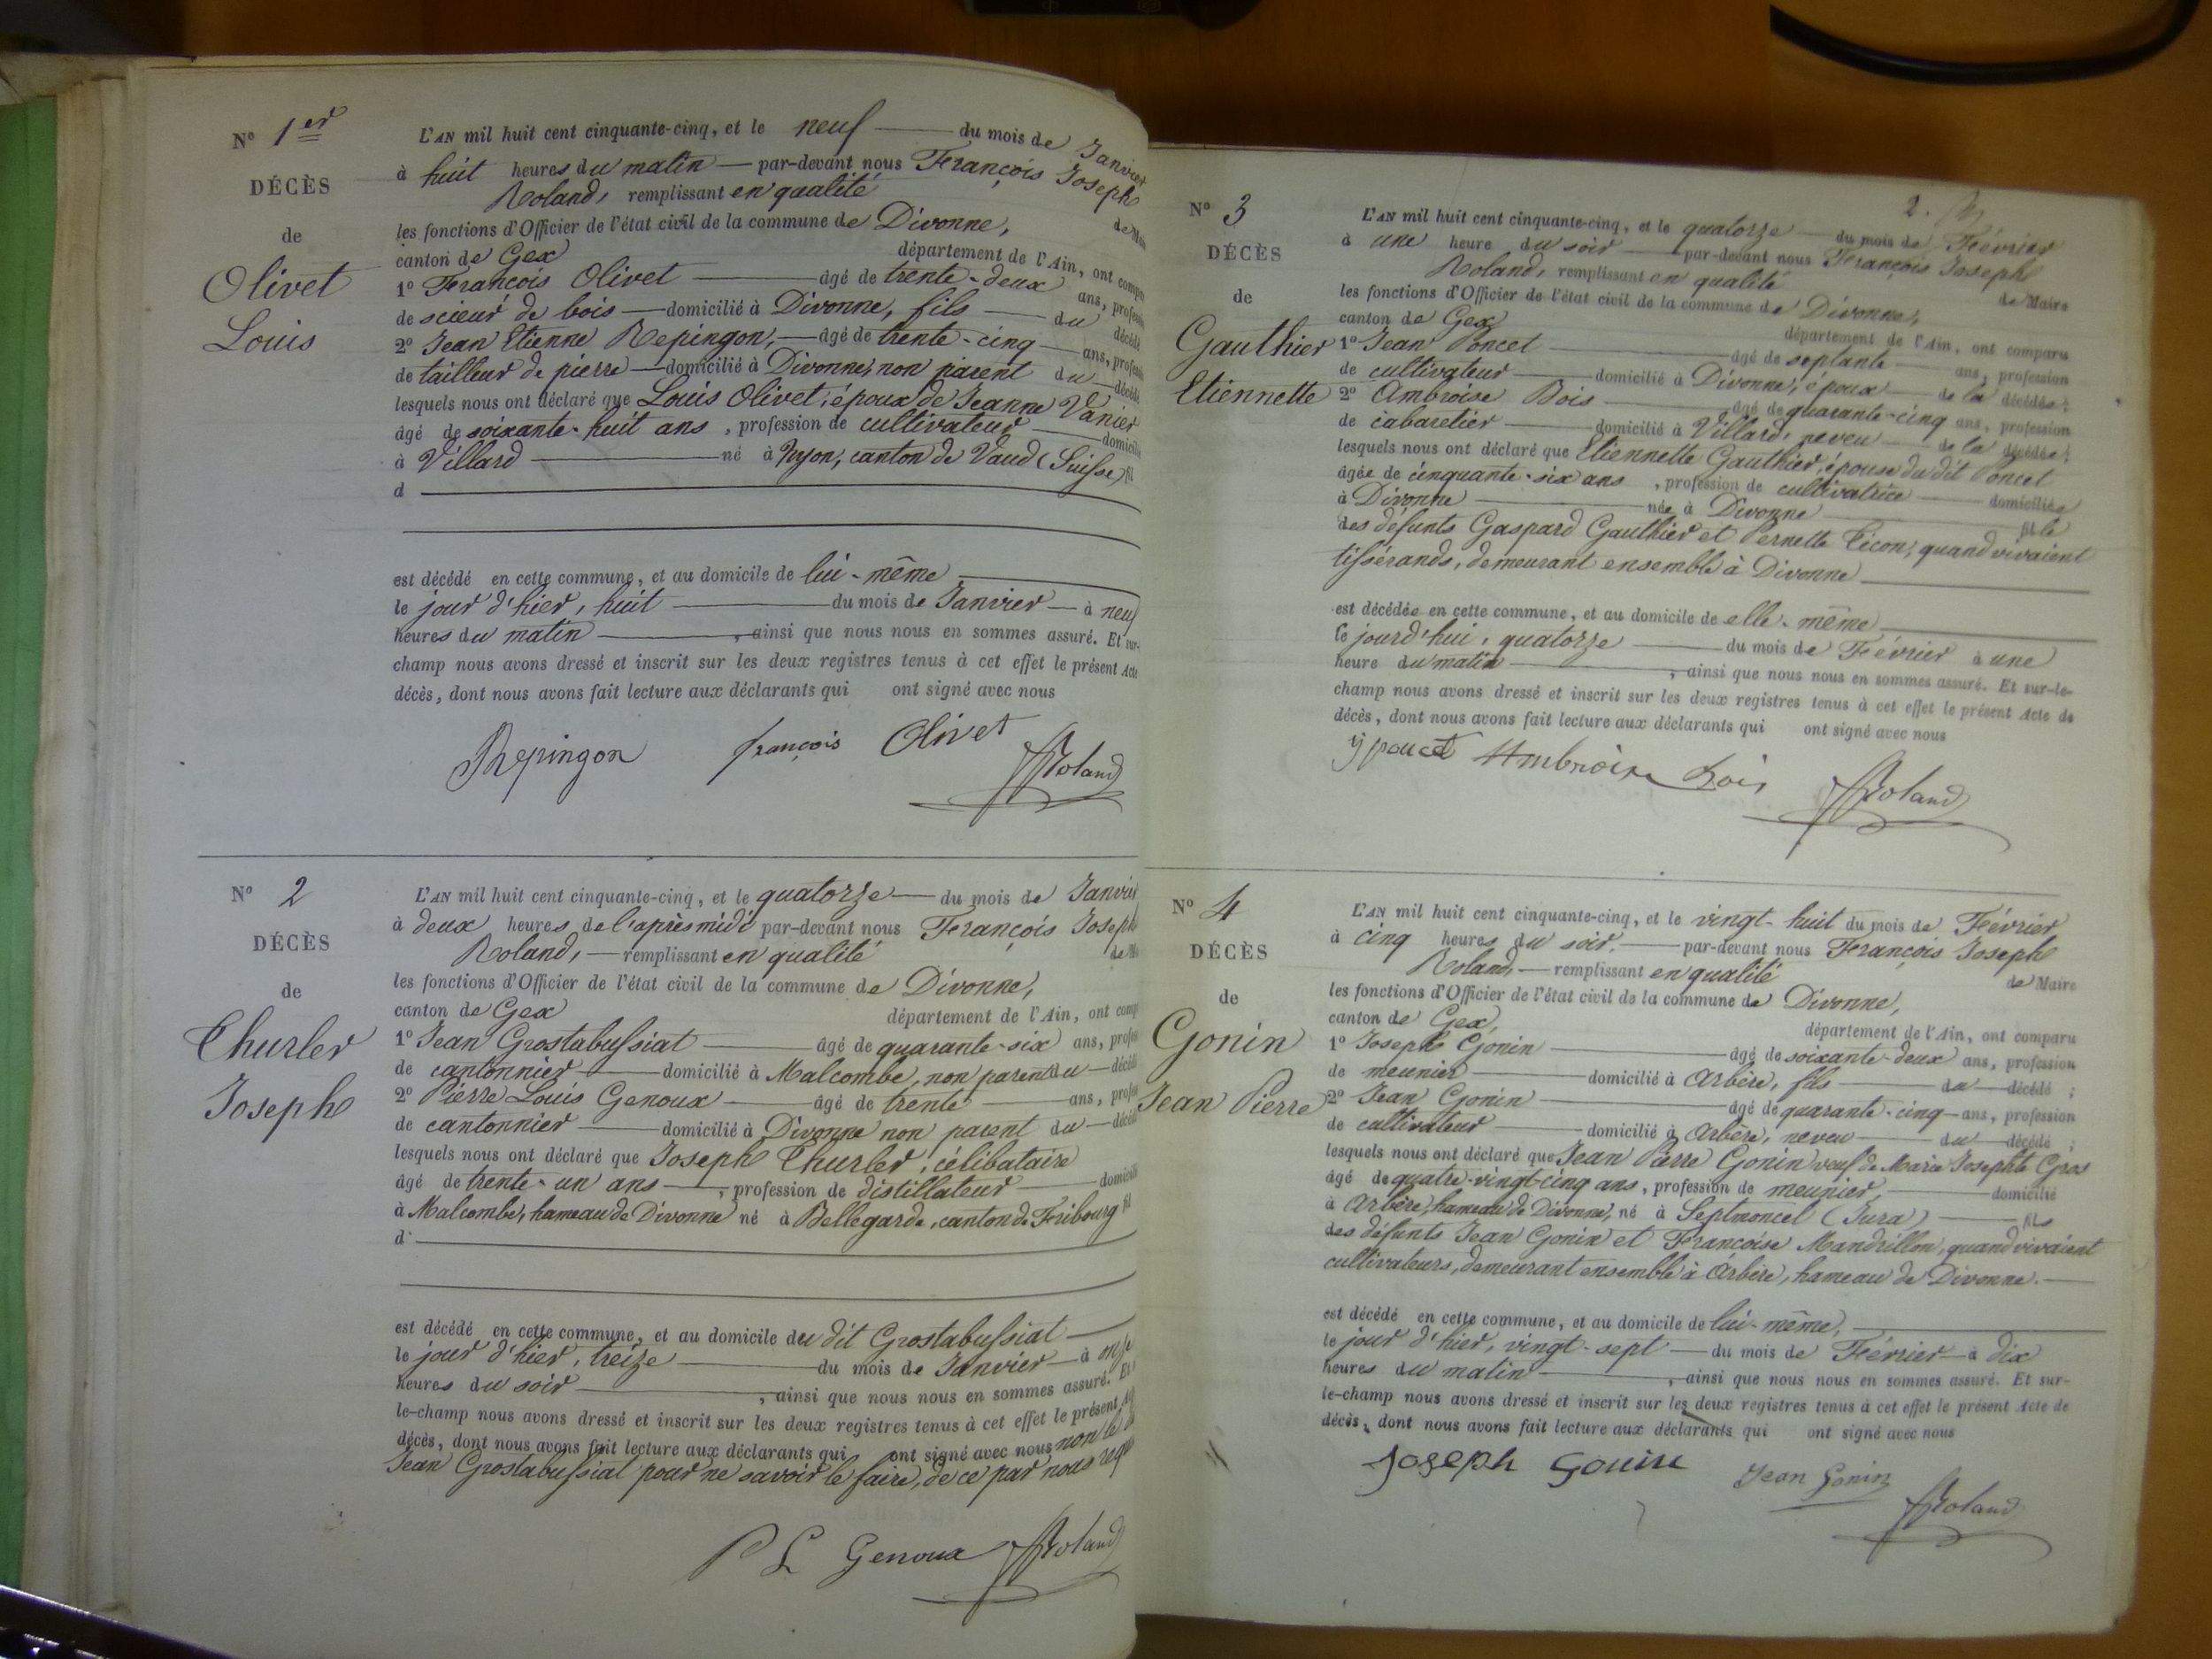 N° 1er
DÉCÈS
de
Olivet
Louis
L'AN mil huit cent cinquante-cinq, et le neuf du mois de Janvier
à huit heures du matin par-devant nous François Joseph
Roland, remplissant en qualité de
les fonctions d'Officier de l'état civil de la commune de Divonne,
canton de Gex département de l'Ain, ont
1° François Olivet âgé de trente-deux ans,
de scieur de bois domicilié à Divonne, fils du décédé
2° Jean Etienne Repingon, âgé de trente-cinq ans,
de tailleur de pierre domicilié à Divonne, non parent du décédé
lesquels nous ont déclaré que Louis Olivet, époux de Jeanne Vanier
âgé de soixante-huit ans, profession de cultivateur
à Villard né à Nyon, canton de Vaud (Suisse)
d
est décédé en cette commune, et au domicile de lui-même
le jour d'hier, huit du mois de Janvier à neuf
heures du matin, ainsi que nous nous en sommes assuré. Et sur-
champ nous avons dressé et inscrit sur les deux registres tenus à cet effet le présent Acte
décès, dont nous avons fait lecture aux déclarants qui ont signé avec nous
Repingon françois Olivet Roland
N° 2
DÉCÈS
de
Thurler
Joseph
L'AN mil huit cent cinquante-cinq, et le quatorze du mois de Janvier
à deux heures de l'après midi par-devant nous François Joseph
Roland, remplissant en qualité de
les fonctions d'Officier de l'état civil de la commune de Divonne,
canton de Gex département de l'Ain, ont
1° Jean Grostabussiat âgé de quarante-six ans,
de cantonnier domicilié à Malcombe, non parent du
2° Pierre Louis Genoux âgé de trente ans,
de cantonnier domicilié à Divonne non parent du
lesquels nous ont déclaré que Joseph Thurler, célibataire
âgé de trente-un ans, profession de distillateur
à Malcombe, hameau de Divonne né à Bellegarde, canton de Fribourg
d
est décédé en cette commune, et au domicile du dit Grostabussiat
le jour d'hier, treize du mois de Janvier à onze
heures du soir, ainsi que nous nous en sommes assuré. Et
le-champ nous avons dressé et inscrit sur les deux registres tenus à cet effet le présent
décès, dont nous avons fait lecture aux déclarants qui ont signé avec nous non le
Jean Grostabussiat pour ne savoir le faire, de ce par nous
P L Genoux Roland
2.
N° 3
DÉCÈS
de
Gauthier
Etiennette
L'AN mil huit cent cinquante-cinq, et le quatorze du mois de Février
à une heure du soir par-devant nous François Joseph
Roland, remplissant en qualité de Maire
les fonctions d'Officier de l'état civil de la commune de Divonne,
canton de Gex département de l'Ain, ont comparu
1° Jean Poncet âgé de septante ans, profession
de cultivateur domicilié à Divonne, époux de la décédée;
2° Ambroise Bois âgé de quarante-cinq ans, profession
de cabaretier domicilié à Villard, neveu de la décédée;
lesquels nous ont déclaré que Etiennette Gauthier, épouse du dit Poncet
âgée de cinquante-six ans, profession de cultivatrice domiciliée
à Divonne née à Divonne fille
des défunts Gaspard Gauthier et Pernette Ticon, quand vivaient
tissérands, demeurant ensemble à Divonne
est décédée en cette commune, et au domicile de elle-même
le jourd'hui, quatorze du mois de Février à une
heure du matin, ainsi que nous nous en sommes assuré. Et sur-le-
champ nous avons dressé et inscrit sur les deux registres tenus à cet effet le présent Acte de
décès, dont nous avons fait lecture aux déclarants qui ont signé avec nous
Ambroise bois Roland
N° 4
DÉCÈS
de
Gonin
Jean Pierre
L'AN mil huit cent cinquante-cinq, et le vingt-huit du mois de Février
à cinq heures du soir. par-devant nous François Joseph
Roland, remplissant en qualité de Maire
les fonctions d'Officier de l'état civil de la commune de Divonne,
canton de Gex, département de l'Ain, ont comparu
1° Joseph Gonin âgé de soixante-deux ans, profession
de meunier domicilié à Arbère, fils du décédé;
2° Jean Gonin âgé de quarante-cinq ans, profession
de cultivateur domicilié à Arbère, neveu du décédé;
lesquels nous ont déclaré que Jean Pierre Gonin veuf de Marie Josephte Gros
âgé de quatre-vingt-cinq ans, profession de meunier, domicilié
à Arbère, hameau de Divonne, né à Septmoncel (Jura) fils
des défunts Jean Gonin et Françoise Mandrillon, quand vivaient
cultivateurs, demeurant ensemble à Arbère, hameau de Divonne.
est décédé en cette commune, et au domicile de lui-même,
le jour d'hier, vingt-sept du mois de Février à dix
heures du matin, ainsi que nous nous en sommes assuré. Et sur-
le-champ nous avons dressé et inscrit sur les deux registres tenus à cet effet le présent Acte de
décès, dont nous avons fait lecture aux déclarants qui ont signé avec nous
Joseph Gonin Jean Gonin Roland